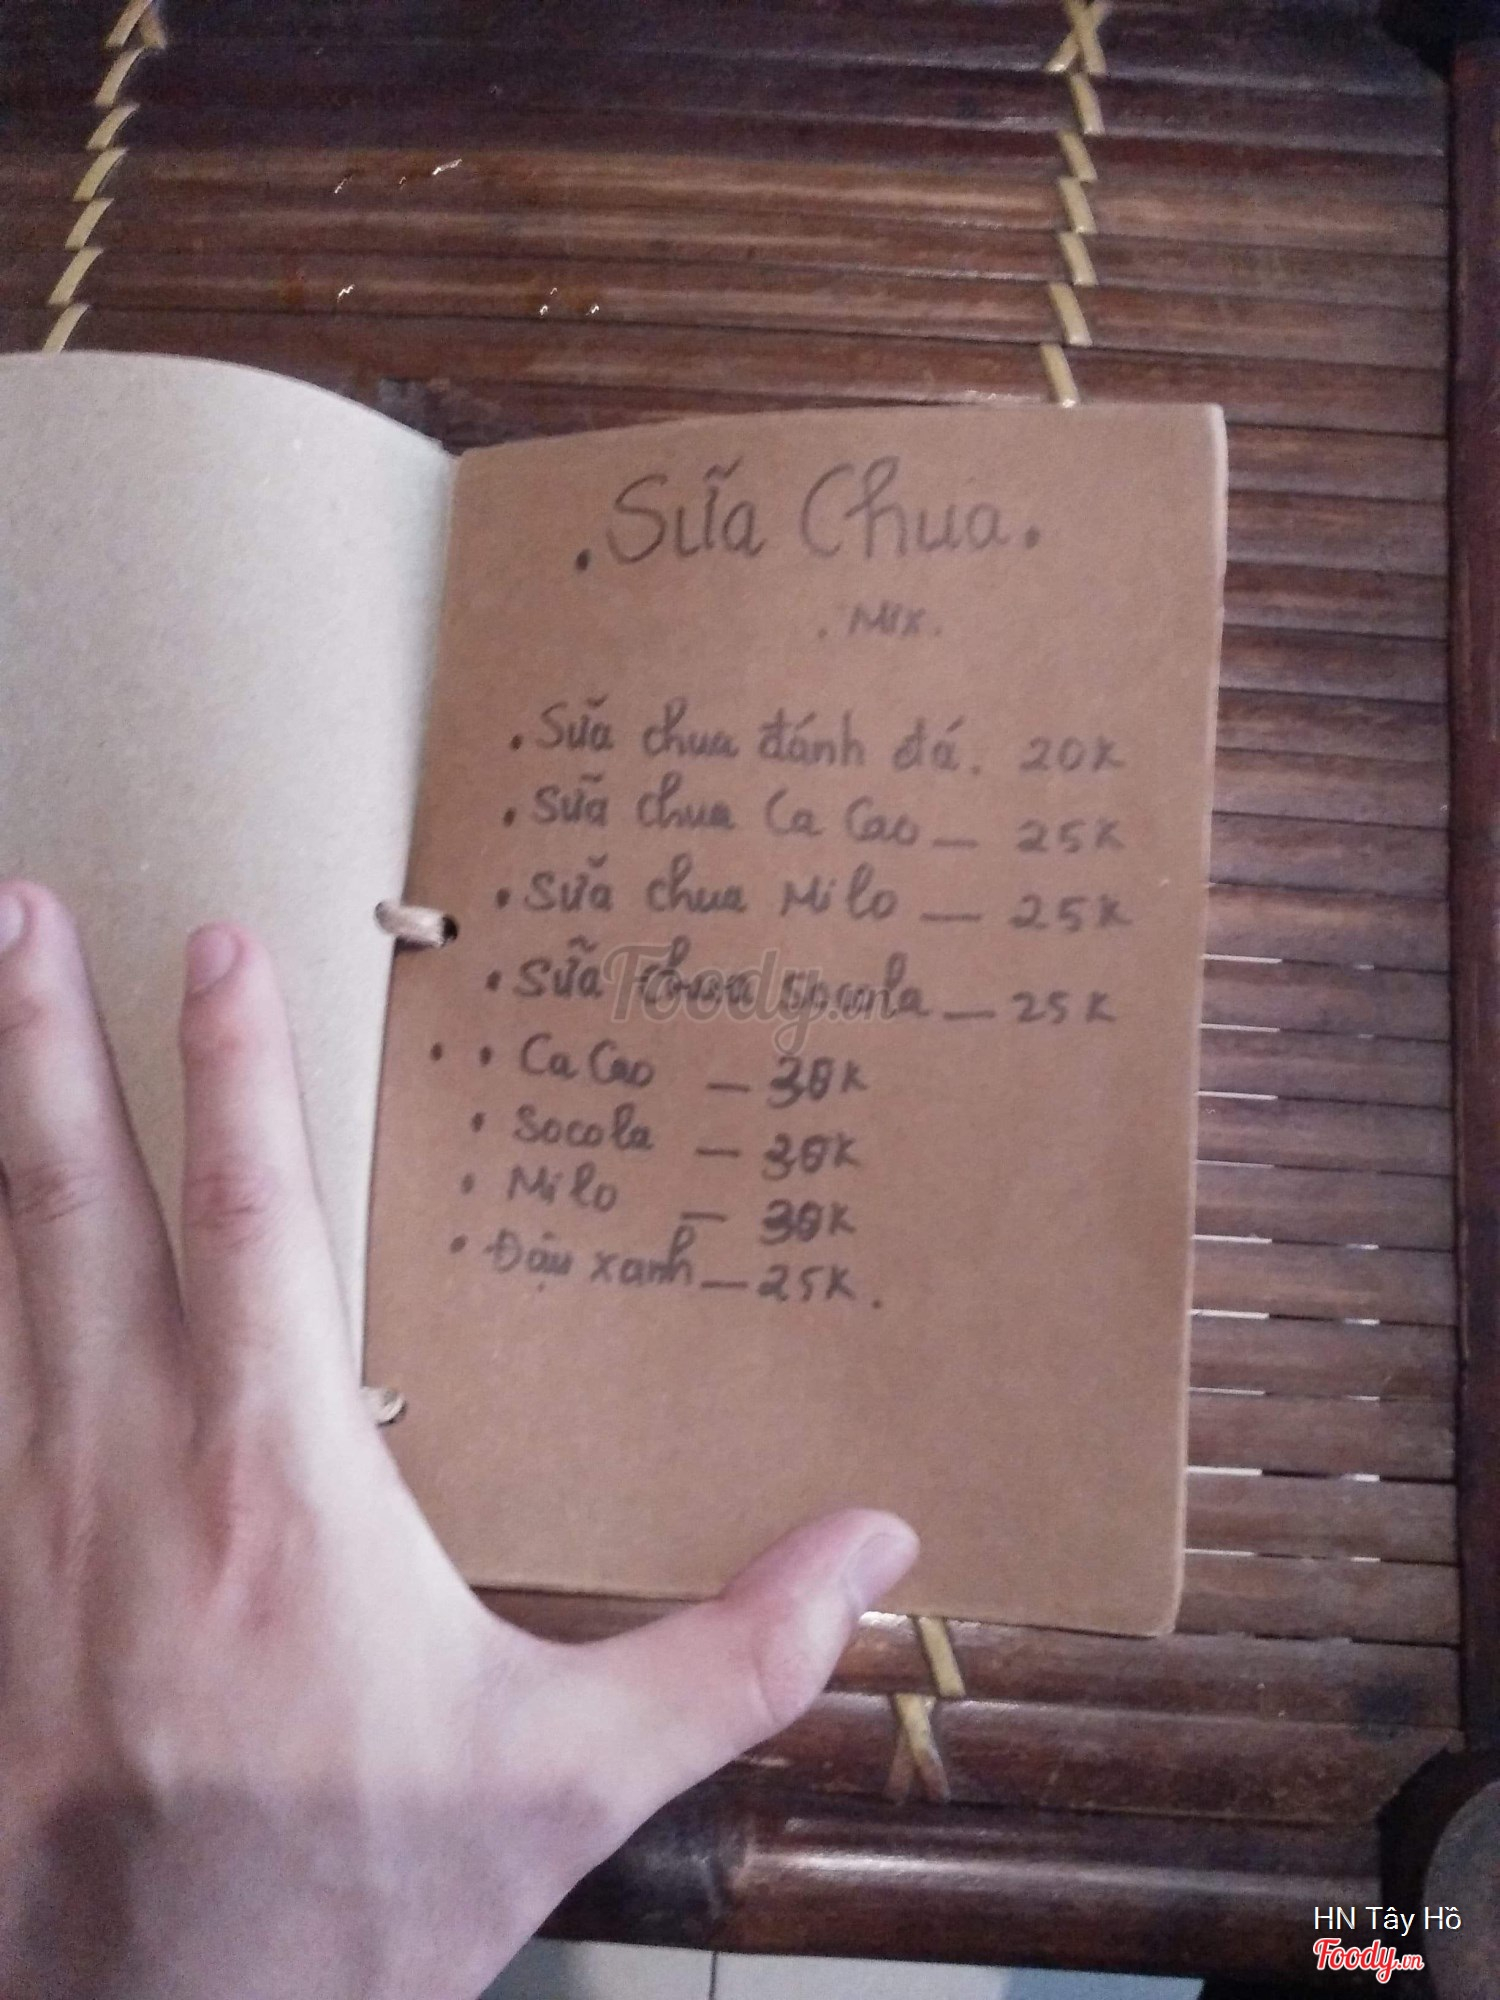 . Sữa Chua.
. Mix.
. Sữa chua đánh đá. 20K
. Sữa chua Ca Cao — 25K
. Sữa chua Milo — 25K
. Sữa chua Socola — 25K
. . Ca Cao — 30K
. Socola — 30K
. Milo — 30K
. Đậu xanh — 25K.
Foody.vn
HN Tây Hồ
Foody.vn